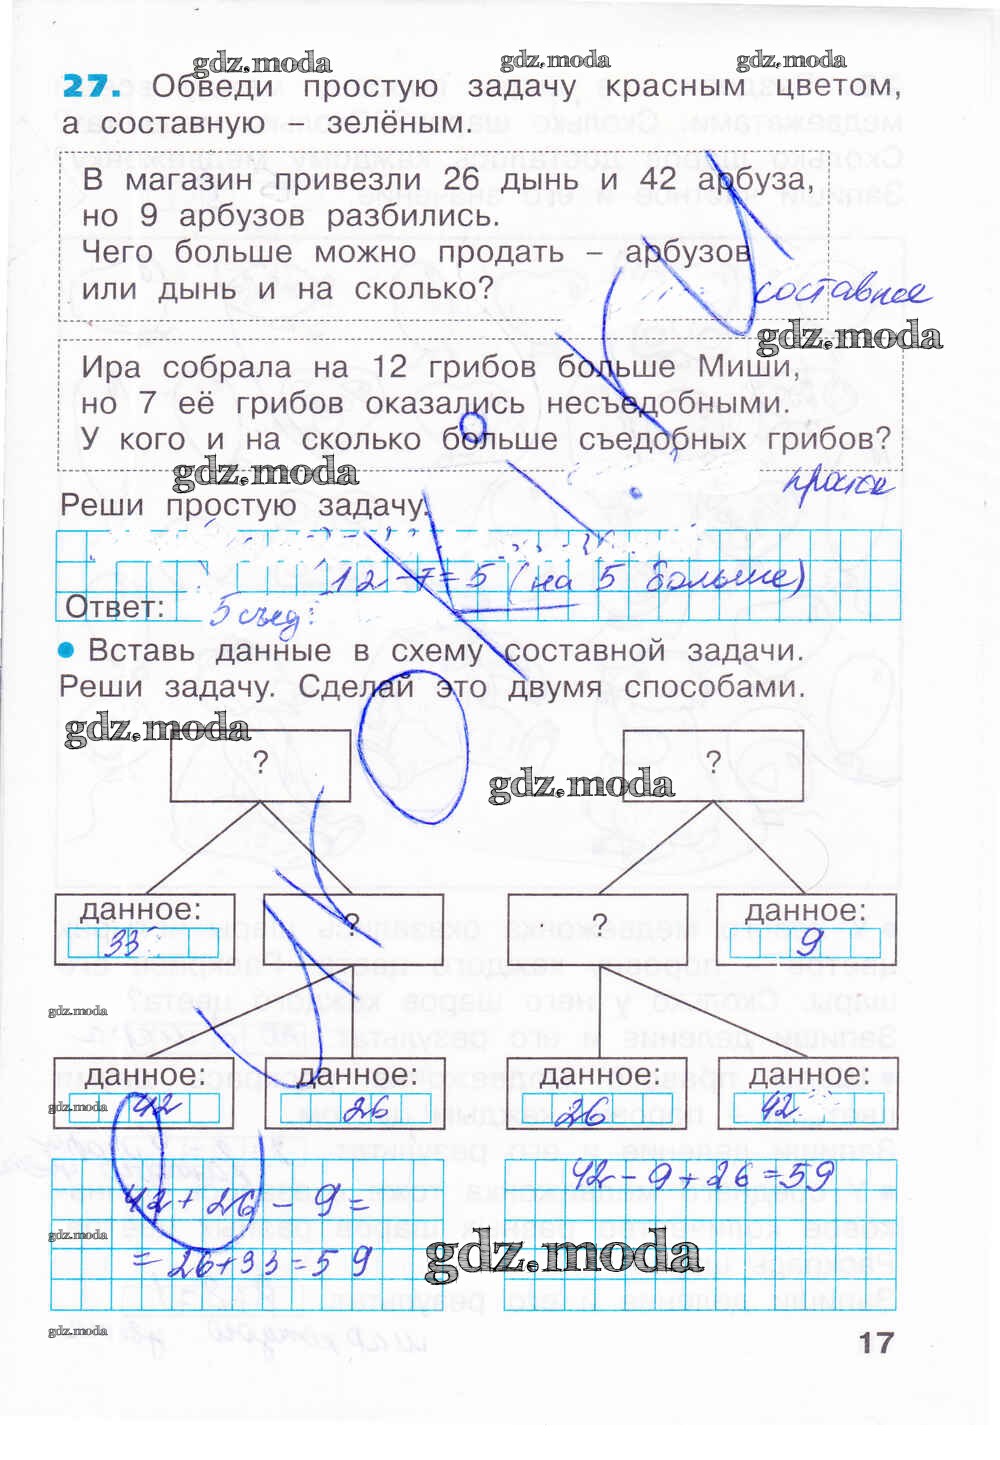 gdz.moda gdz.moda gdz.moda
27. Обведи простую задачу красным цветом,
а составную – зелёным.
В магазин привезли 26 дынь и 42 арбуза,
но 9 арбузов разбились.
Чего больше можно продать – арбузов
или дынь и на сколько?
составное
gdz.moda
Ира собрала на 12 грибов больше Миши,
но 7 её грибов оказались несъедобными.
У кого и на сколько больше съедобных грибов?
gdz.moda
простая
Реши простую задачу.
12 – 7 = 5 (на 5 больше)
Ответ: 5 съед.
• Вставь данные в схему составной задачи.
Реши задачу. Сделай это двумя способами.
gdz.moda
? ?
gdz.moda
данное: ? ? данное:
33 9
gdz.moda
данное: данное: данное: данное:
gdz.moda 42 26 26 42
42 + 26 – 9 = 42 – 9 + 26 = 59
gdz.moda
= 26 + 33 = 59
gdz.moda
gdz.moda
17